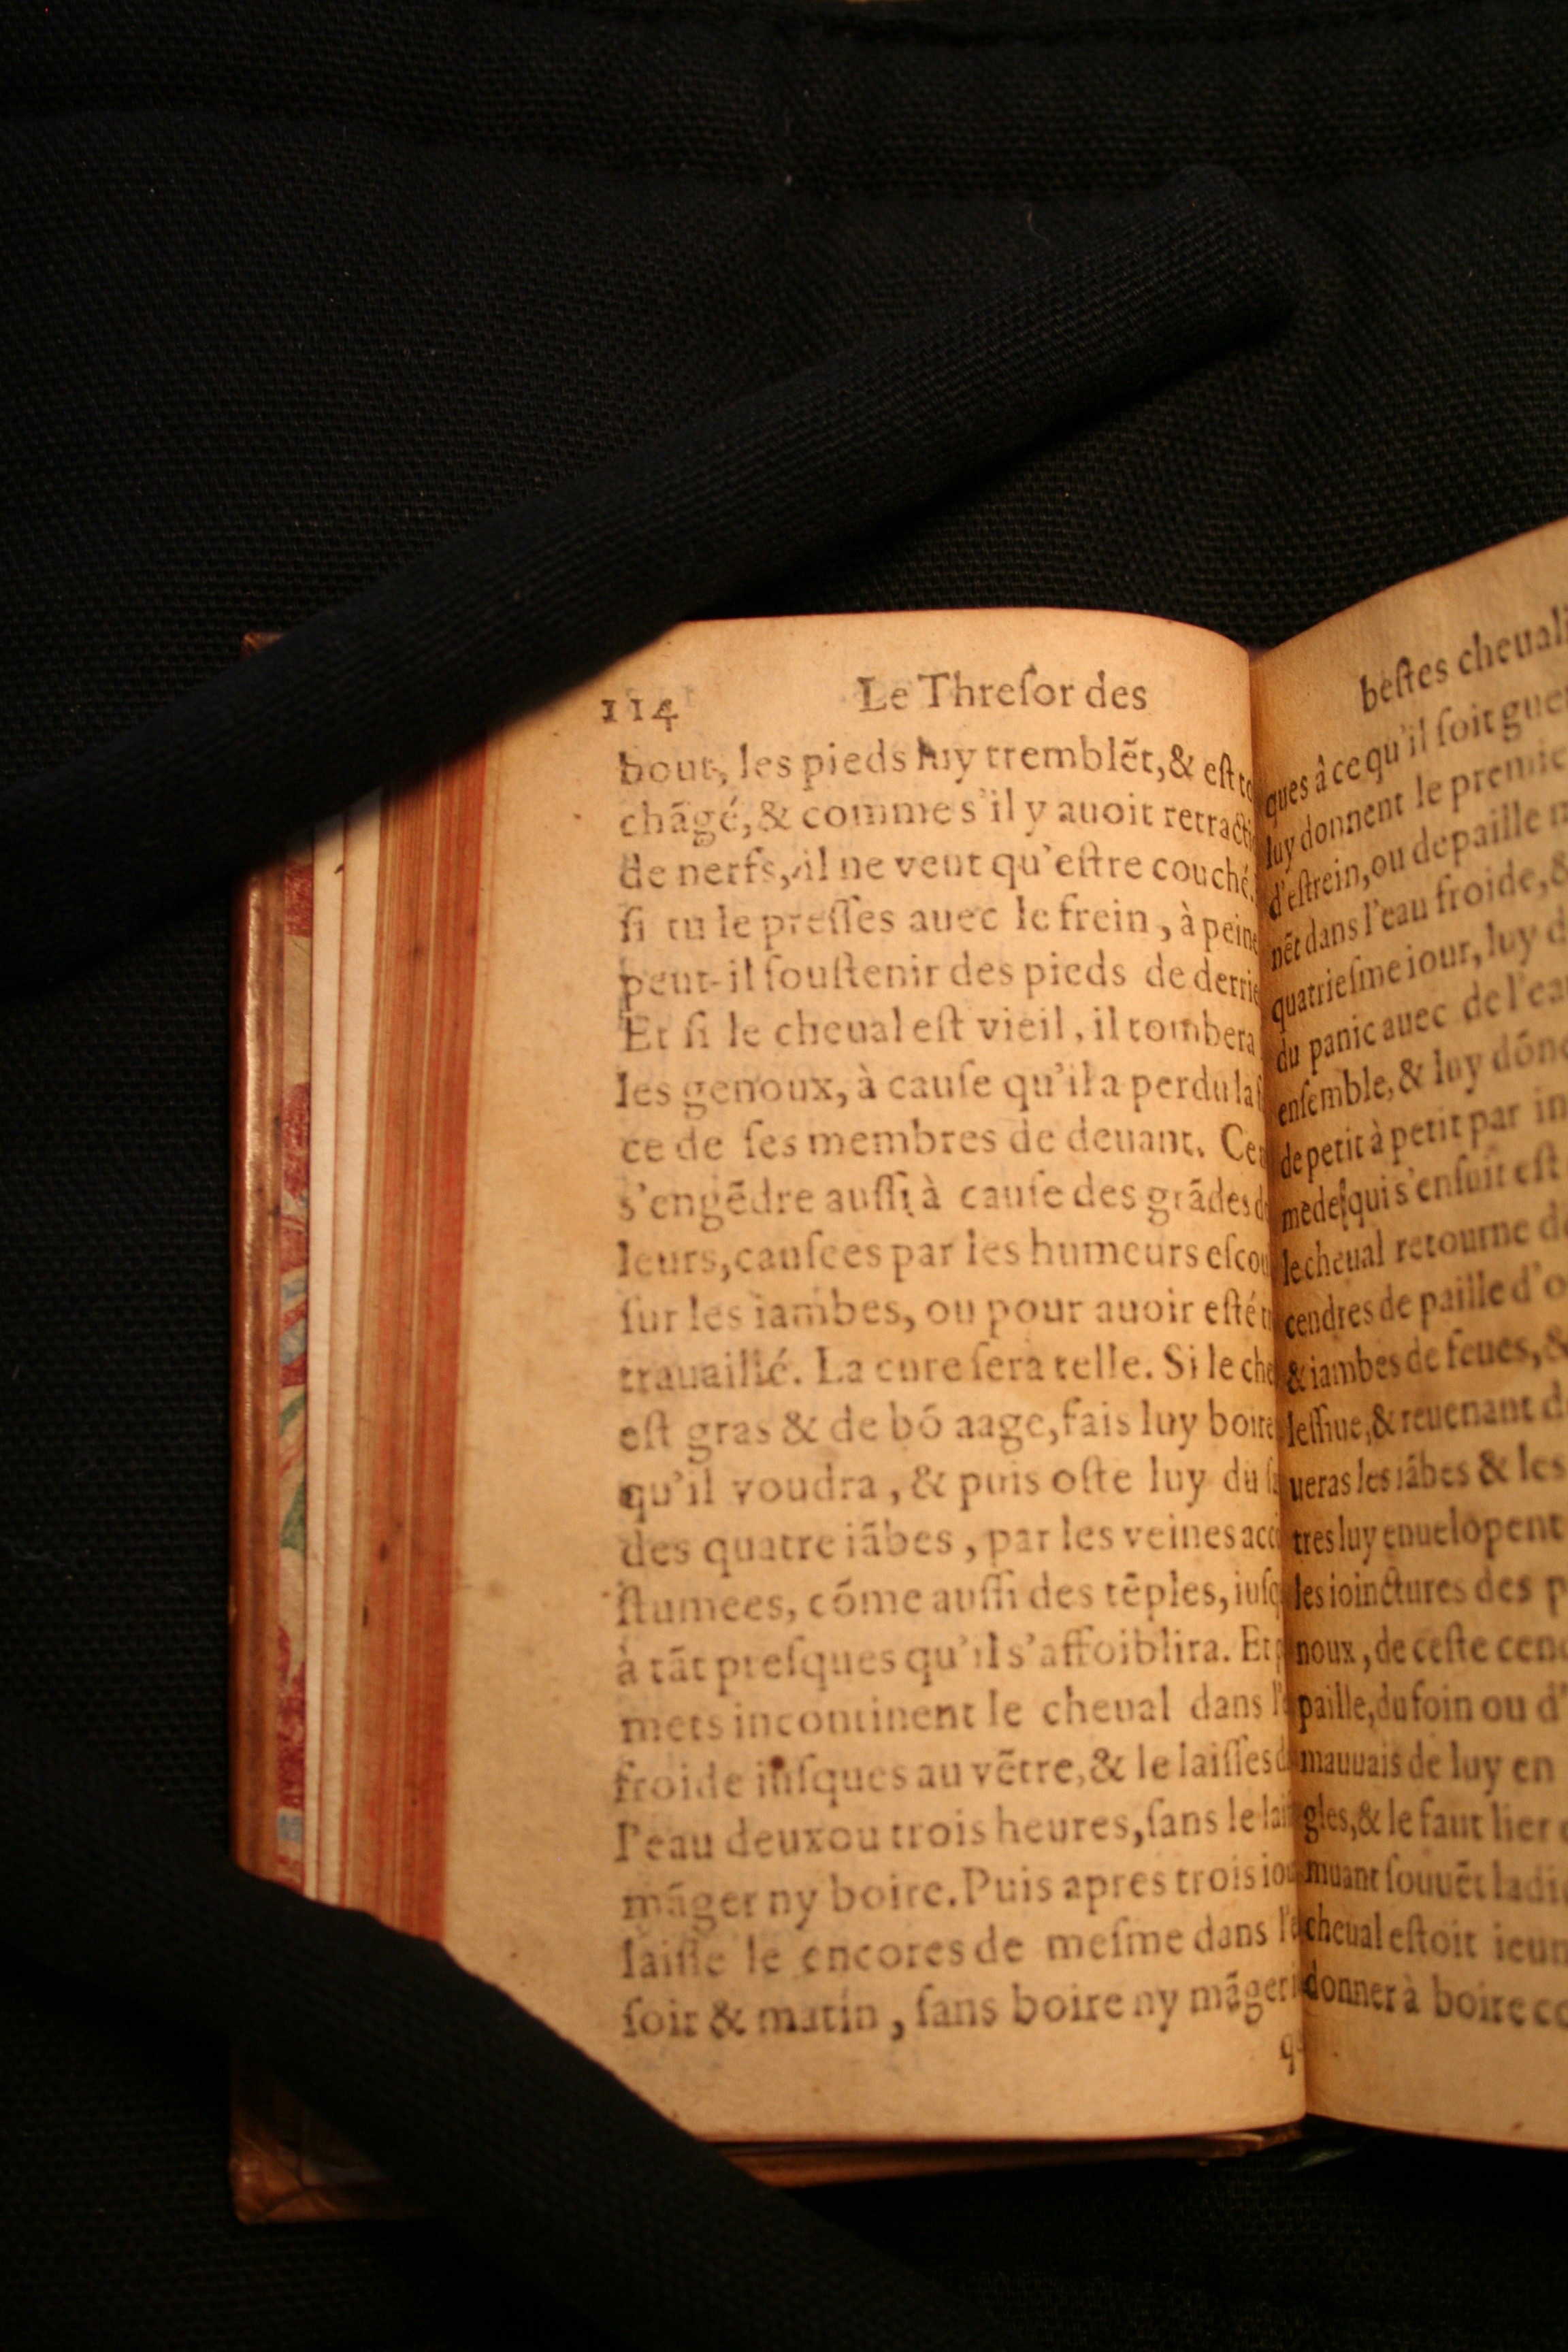 114 Le Threſor des
bout, les pieds luy tremblẽt, & eſt
chãgé, & comme s'il y auoit retracti
de nerfs, il ne veut qu'eſtre couché,
ſi tu le preſſes auec le frein, à peine
peut-il ſouſtenir des pieds de derrie
Et ſi le cheual eſt vieil, il tombera
les genoux, à cauſe qu'il a perdu la
ce de ſes membres de deuant.
s'engẽdre auſſi à cauſe des grãdes
leurs, cauſees par les humeurs eſcou
ſur les iambes, ou pour auoir eſté
trauaillé. La cure ſera telle. Si le che
eſt gras & de bõ aage, fais luy boire
qu'il voudra, & puis oſte luy du
des quatre iãbes, par les veines acc
ſtumees, cõme auſſi des tẽples, iuſq
à tãt preſques qu'il s'affoiblira. Et
mets incontinent le cheual dans l'
froide iuſques au vẽtre, & le laiſſes
l'eau deux ou trois heures, ſans le lai
mãger ny boire. Puis apres trois iou
laiſſe le encores de meſme dans l'e
ſoir & matin, ſans boire ny mãger
beſtes cheuali
ques à ce qu'il ſoit gue
luy donnent le premie
d'eſtrein, ou de paille
nẽt dans l'eau froide, &
quatrieſme iour, luy d
du panic auec de l'ea
enſemble, & luy dõne
de petit à petit par in
mede qui s'enſuit eſt
le cheual retourne d
cendres de paille d'o
& iambes de feues, &
leſſiue, & reuenant d
ueras les iãbes & les
tres luy enuelopent
les ioinctures des p
noux, de ceſte cend
paille, du foin ou d'
mauuais de luy en
gles, & le faut lier
muant ſouuẽt ladi
cheual eſtoit ieun
donner à boire co